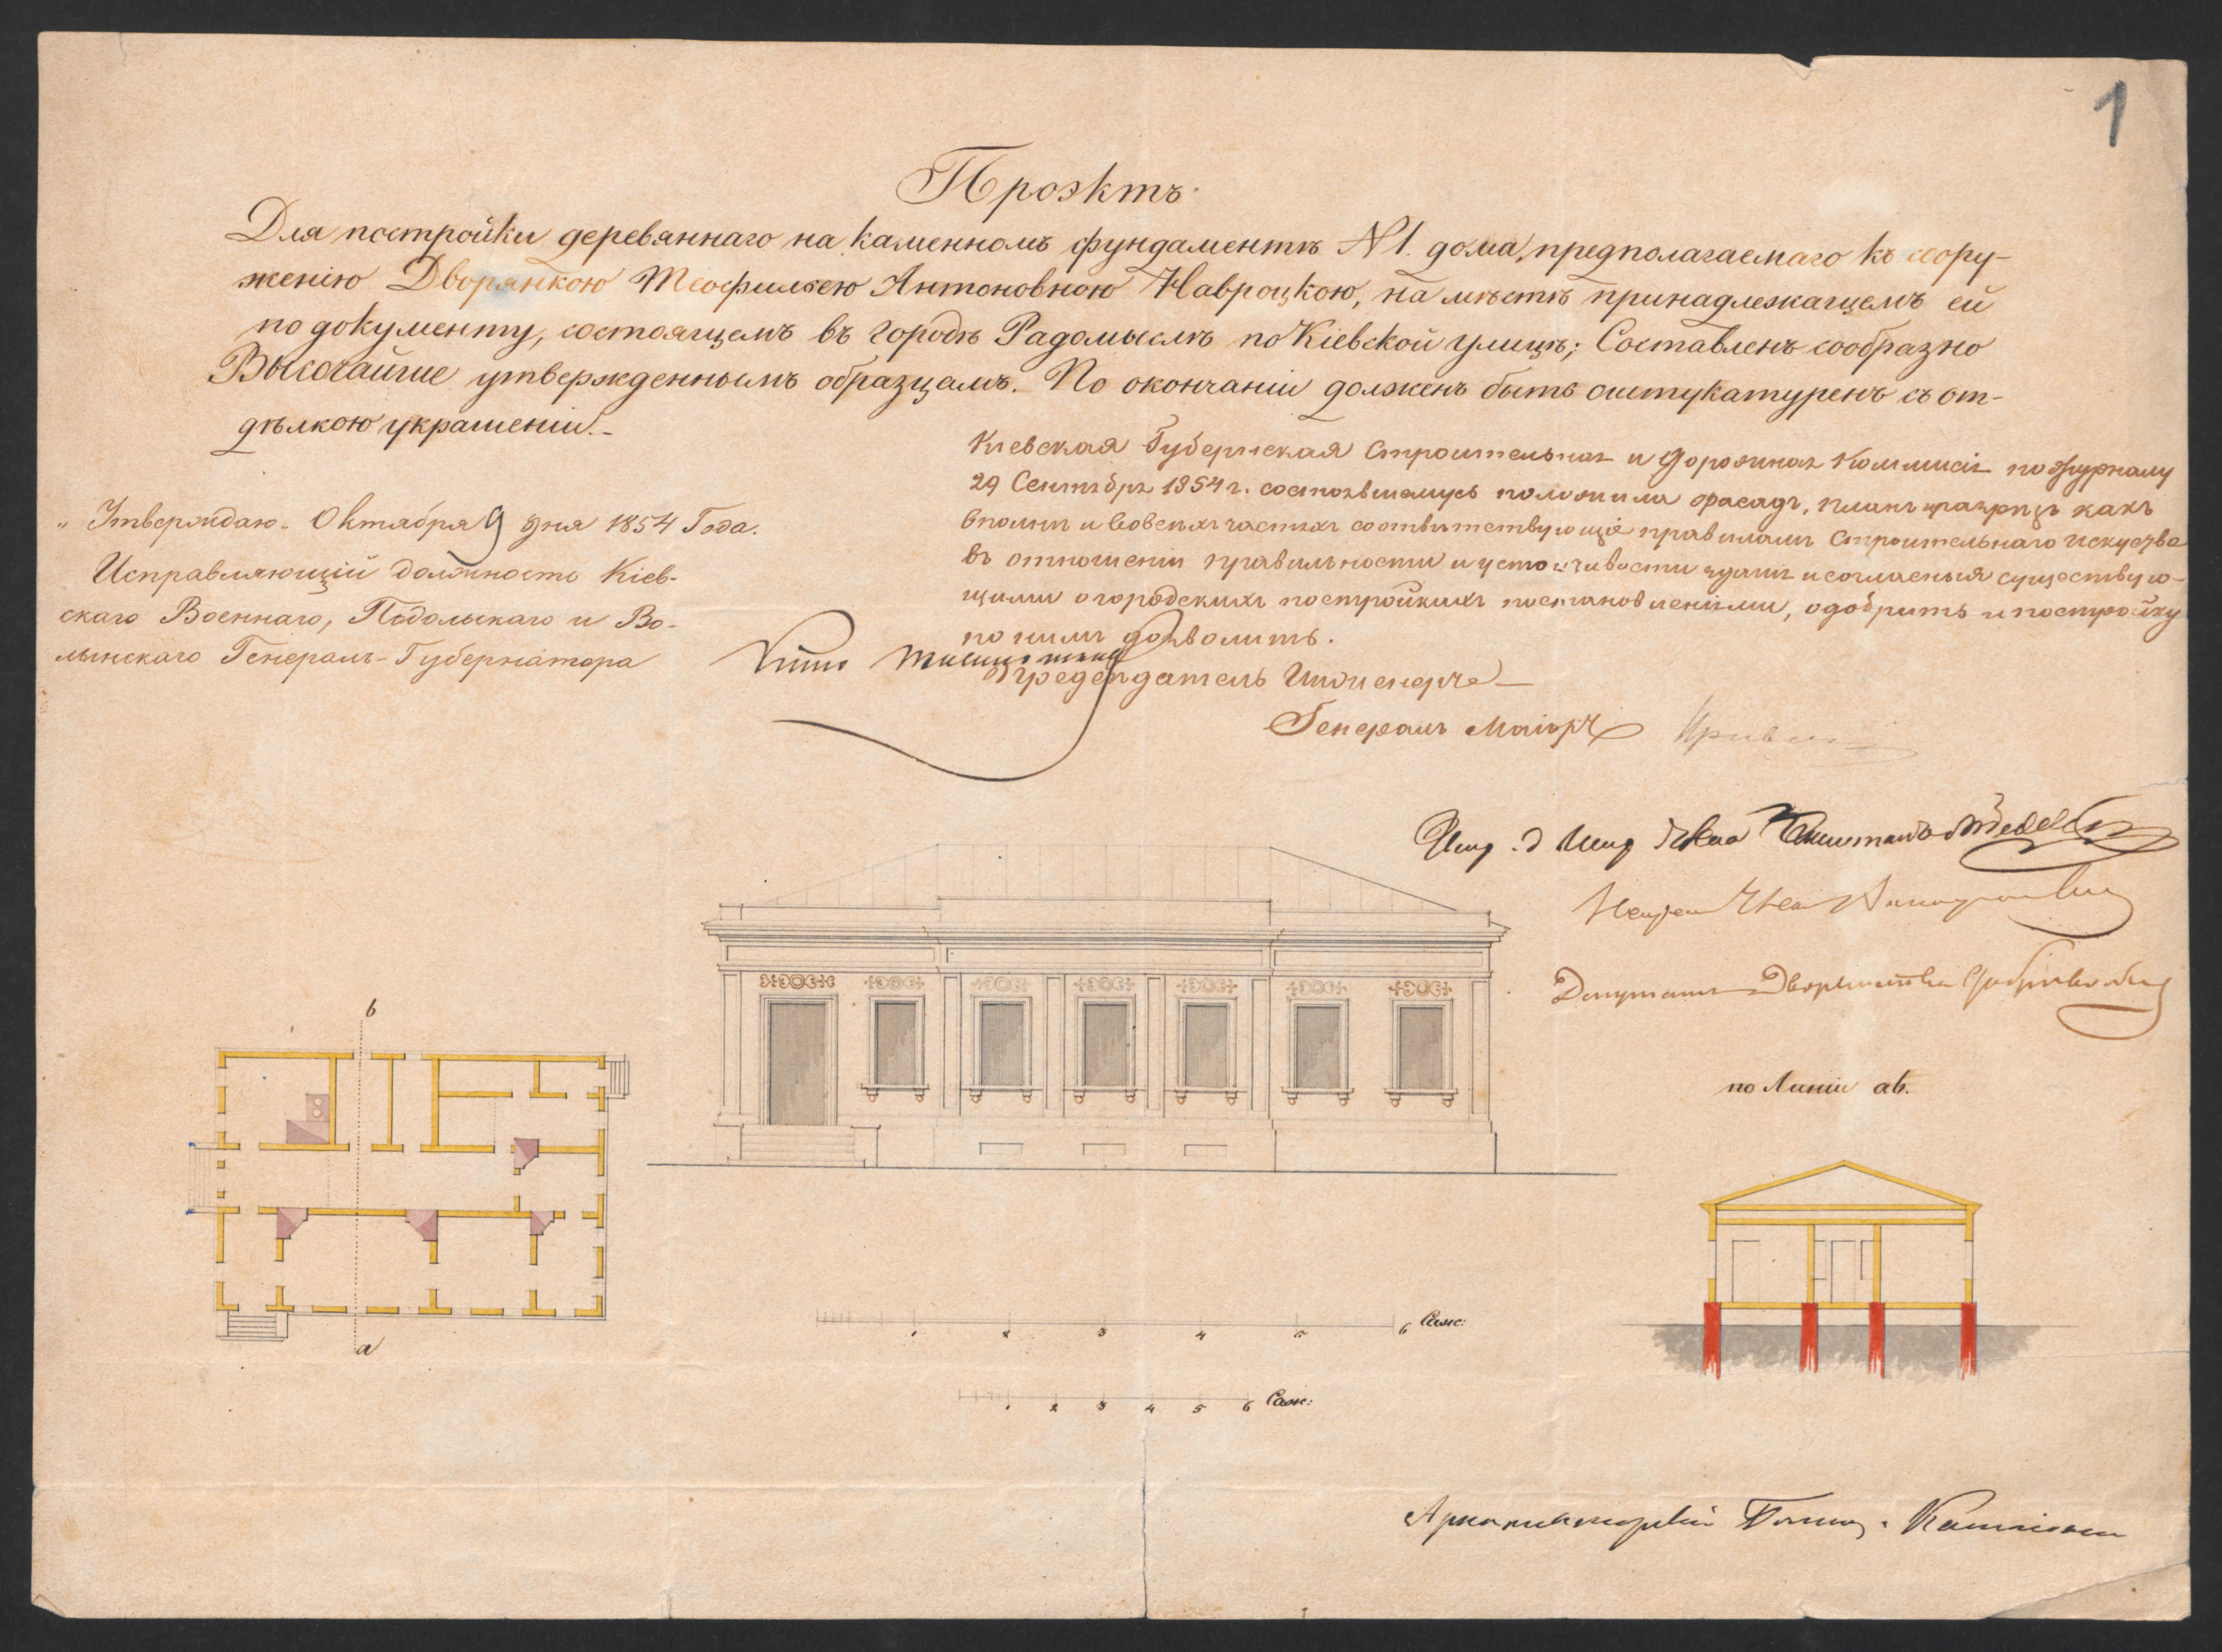 1
Проэктъ
Для постройки деревяннаго на каменномъ фундаментѣ N 1. дома, предполагаемаго къ соору-
женію Дворянкою Теофилею Антоновною Навроцкою, на мѣстѣ принадлежащемъ ей
по документу, состоящемъ въ городѣ Радомыслѣ по Кіевской улицѣ; Составленъ сообразно
Высочайше утвержденнымъ образцамъ. По окончаніи долженъ быть оштукатуренъ съ от-
дѣлкою украшеніи.
Кіевская Губернская Строительная и Дорожная Коммисія по журналу
29 Сентября 1854 г. состоявшемусь положила фасадъ, планъ и разрѣзъ какъ
вполнѣ и вовсехъ частяхъ соотвѣтствующіе правиламъ Строительнаго искуства
въ отношеніи правильности и устойчивости зданія и согласныя существую-
щими о городскихъ постройкахъ постановленіями, одобрить и постройку
по нимъ дозволить.
Предсѣдатель Инженеръ
Генералъ Маіоръ
„Утверждаю„ Октября 9 дня 1854 Года.
Исправляющій должность Кіев-
скаго Военнаго, Подольскаго и Во-
лынскаго Генералъ-Губернатора
Капитанъ
Депутатъ Дворянства
по Линіи ab.
b
a
1 2 3 4 5 6 Саж:
1 2 3 4 5 6 Саж:
Архитекторскій